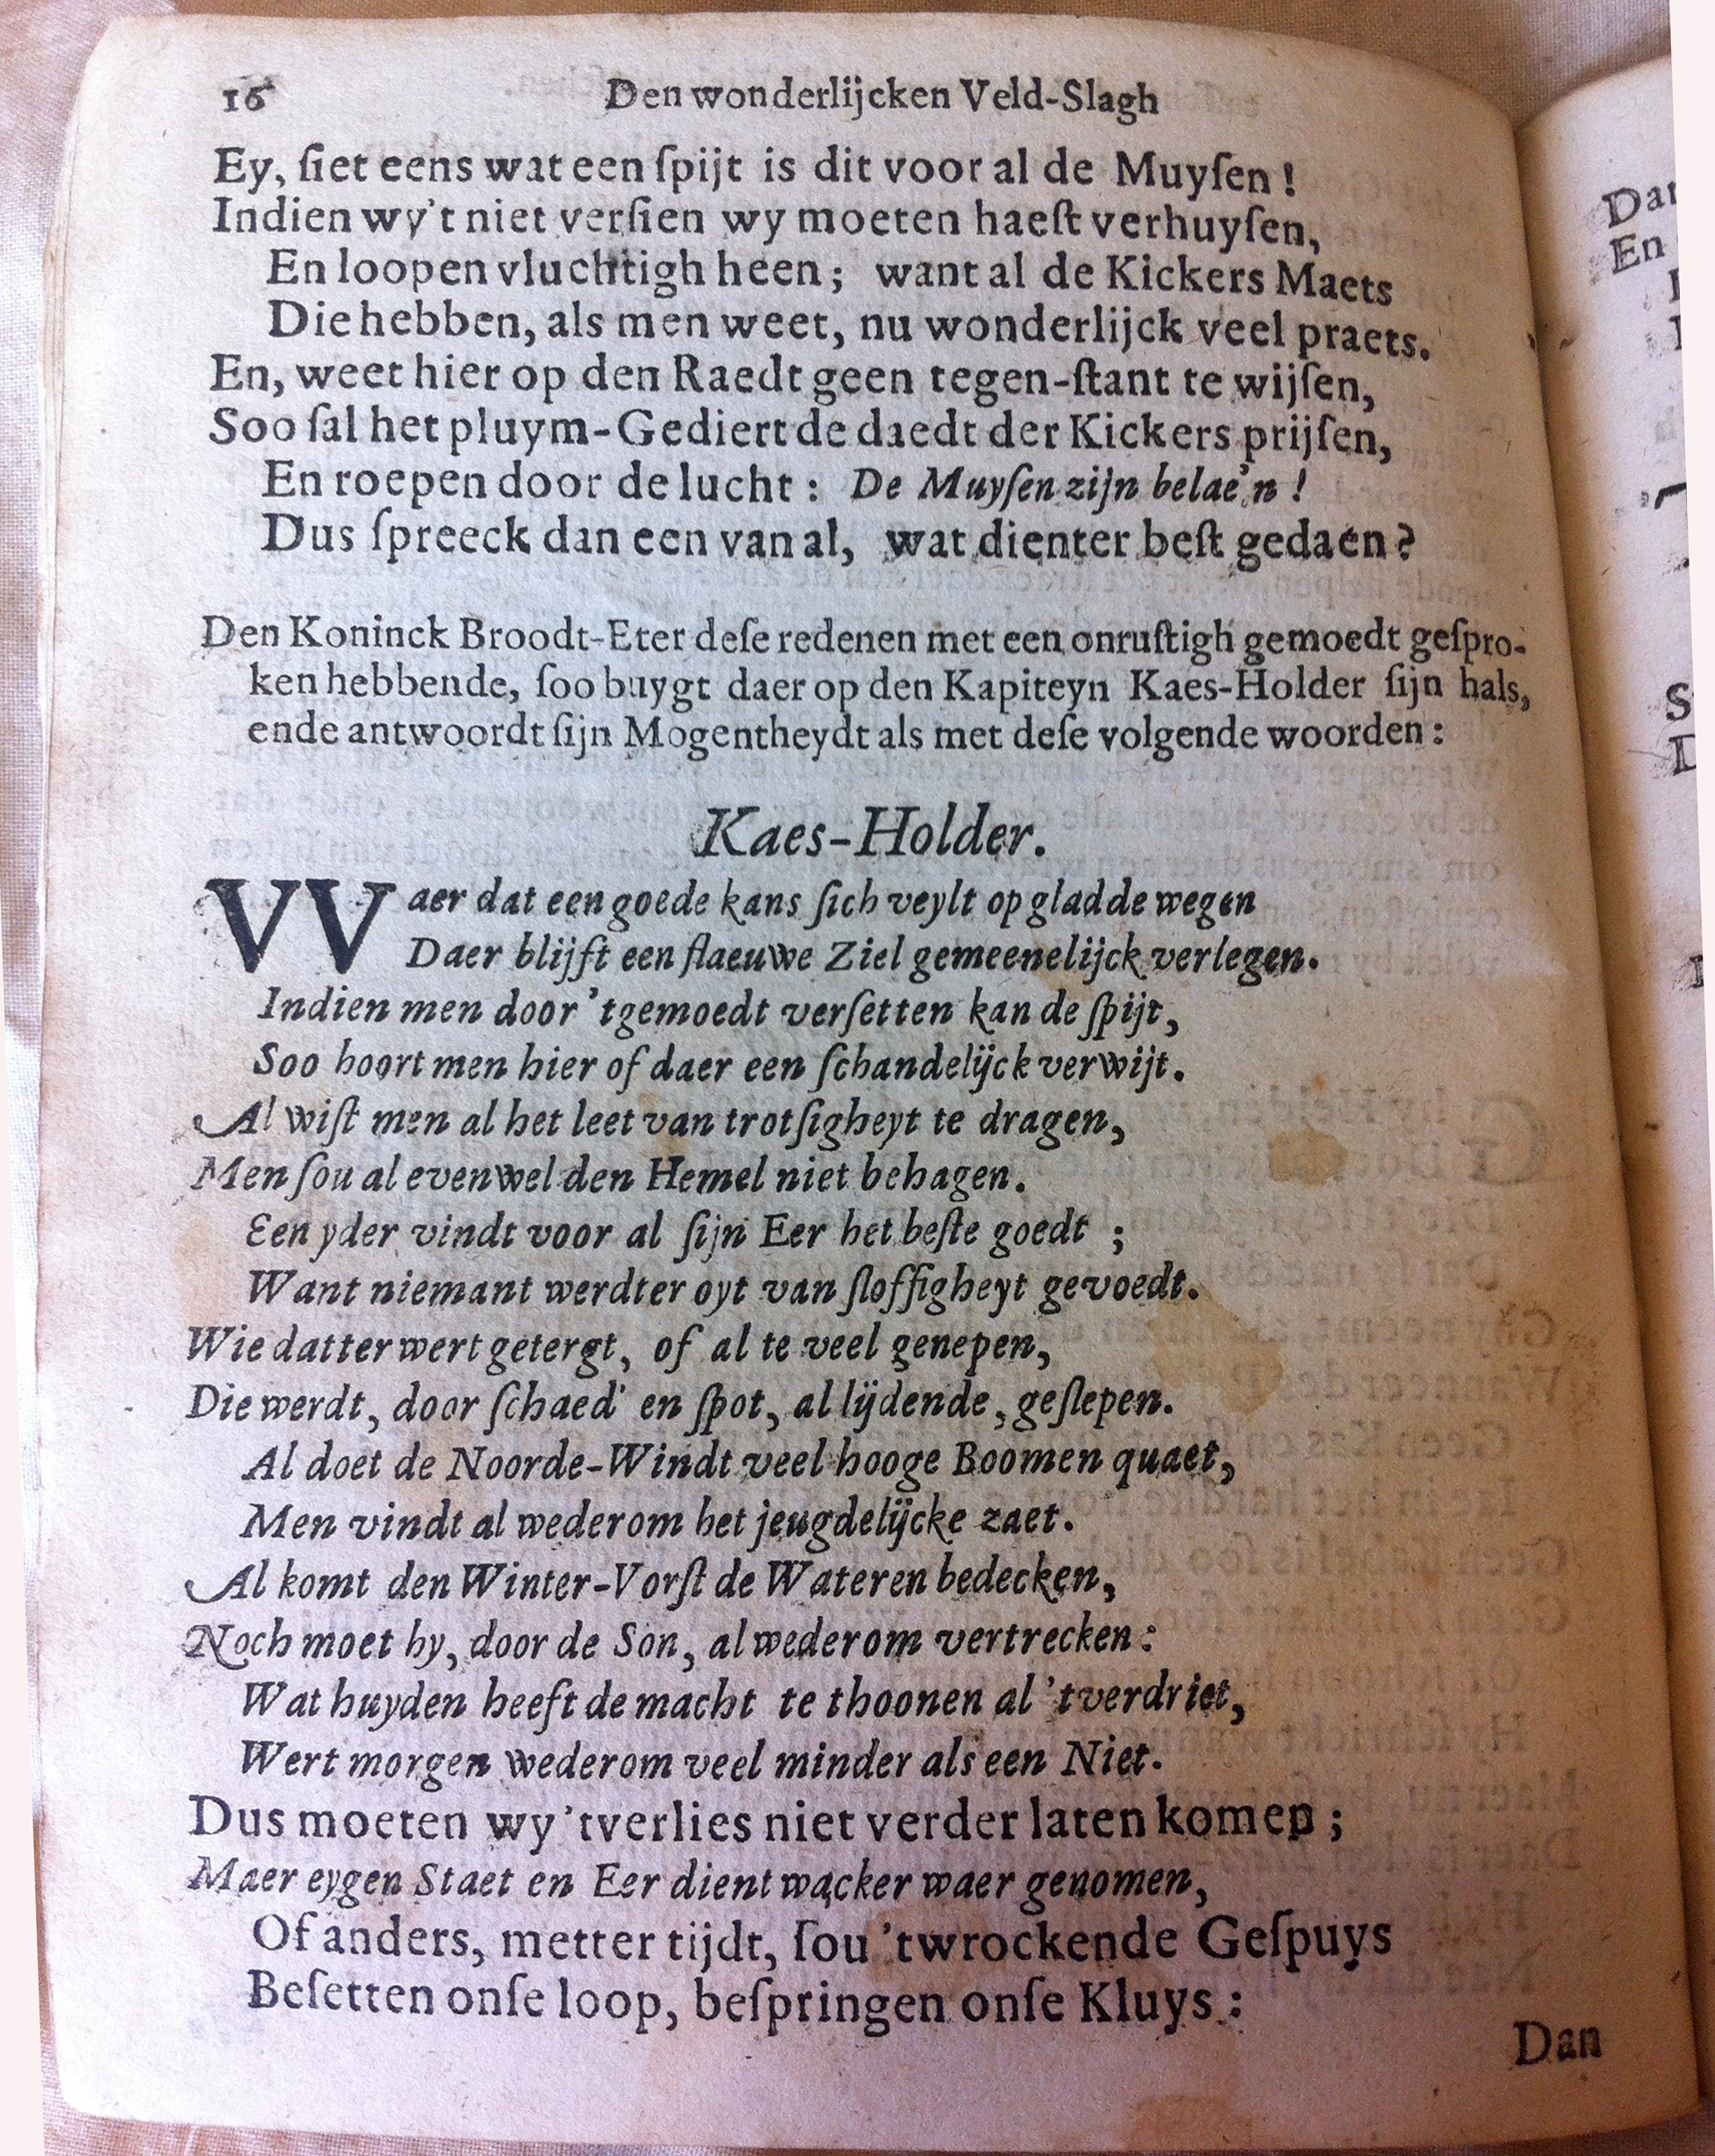 16 Den wonderlijcken Veld-Slagh
Ey, ſiet eens wat een ſpijt is dit voor al de Muyſen!
Indien wy't niet verſien wy moeten haeſt verhuyſen,
En loopen vluchtigh heen; want al de Kickers Maets
Die hebben, als men weet, nu wonderlijck veel praets.
En, weet hier op den Raedt geen tegen-ſtant te wijſen,
Soo ſal het pluym-Gediert de daedt der Kickers prijſen,
En roepen door de lucht: De Muyſen zijn belae'n!
Dus ſpreeck dan een van al, wat dienter beſt gedaen?
Den Koninck Broodt-Eter deſe redenen met een onruſtigh gemoedt geſpro-
ken hebbende, ſoo buygt daer op den Kapiteyn Kaes-Holder ſijn hals,
ende antwoordt ſijn Mogentheydt als met deſe volgende woorden:
Kaes-Holder.
VVaer dat een goede kans ſich veylt op gladde wegen
Daer blijft een flaeuwe Ziel gemeenelijck verlegen.
Indien men door 't gemoedt verſetten kan de ſpijt,
Soo hoort men hier of daer een ſchandelijck verwijt.
Al wiſt men al het leet van trotſigheyt te dragen,
Men ſou al evenwel den Hemel niet behagen.
Een yder vindt voor al ſijn Eer het beſte goedt;
Want niemant werdter oyt van ſloffigheyt gevoedt.
Wie datter wert getergt, of al te veel genepen,
Die werdt, door ſchaed' en ſpot, al lijdende, geſlepen.
Al doet de Noorde-Windt veel hooge Boomen quaet,
Men vindt al wederom het jeugdelijcke zaet.
Al komt den Winter-Vorſt de Wateren bedecken,
Noch moet hy, door de Son, al wederom vertrecken:
Wat huyden heeft de macht te thoonen al 't verdriet,
Wert morgen wederom veel minder als een Niet.
Dus moeten wy 't verlies niet verder laten komen;
Maer eygen Staet en Eer dient wacker waer genomen,
Of anders, metter tijdt, ſou 't wrockende Geſpuys
Beſetten onſe loop, beſpringen onſe Kluys:
Dan